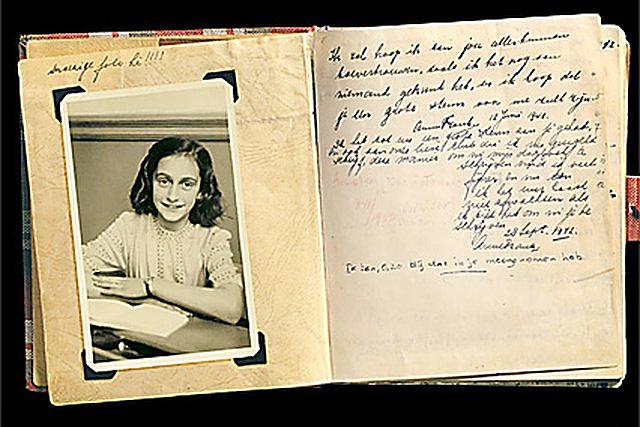 snoezige foto hè!!!!
Ik zal hoop ik aan jou alles kunnen
toevertrouwen, zoals ik het nog aan
niemand gekund heb, en ik hoop dat
je een grote steun voor me zult zijn.
Anne Frank. 12 Juni 1942.
Ik heb tot nu toe een grote steun aan je gehad,
en ook aan onze lieve club die ik nu geregeld
schrijf, deze manier om in mijn dagboek te
schrijven vind ik veel
fijner en nu kan
ik het uur haast
niet afwachten als
ik tijd heb om in je te
schrijven.
28 Sept. 1942.
Anne Frank.
Ik ben, o, zo blij dat ik je meegenomen heb.